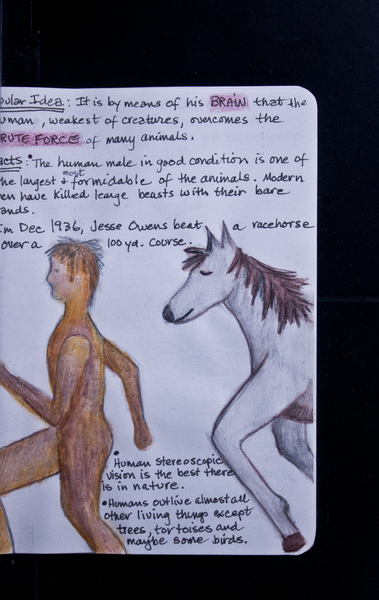 pular Idea: It is by means of his BRAIN that the
uman, weakest of creatures, overcomes the
RUTE FORCE of many animals.
acts: • The human male in good condition is one of
he largest + most formidable of the animals. Modern
en have killed large beasts with their bare
ands.
In Dec 1936, Jesse Owens beat a racehorse
over a 100 yd. course.
• Human stereoscopic
vision is the best there
is in nature.
• Humans outlive almost all
other living things except
trees, tortoises and
maybe some birds.